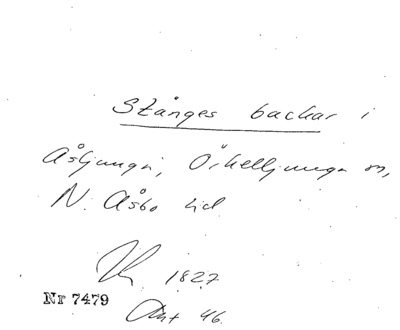 Stånges backar i
Åsljunga, Örkelljunga sn,
N. Åsbo hd
1827
Nr 7479
Ant 46.